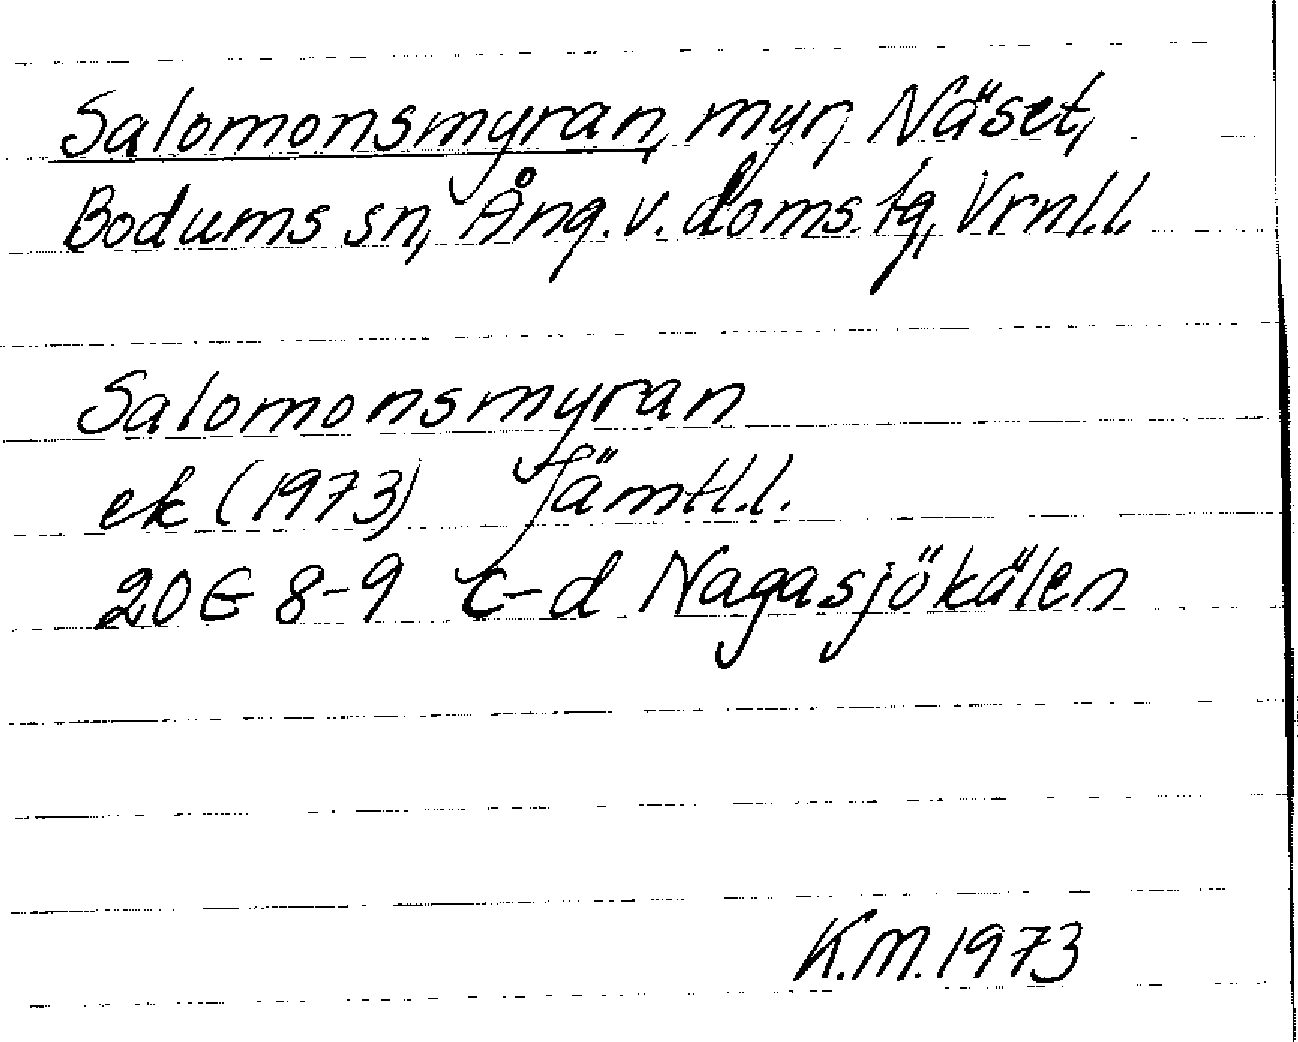 Salomonsmyran, myr, Näset,
Bodums sn, Ång. v. doms. tg, Vrnl.l.
Salomonsmyran
ek (1973) Jämtl.l.
20G 8-9 c-d Nagasjökälen
K.M. 1973